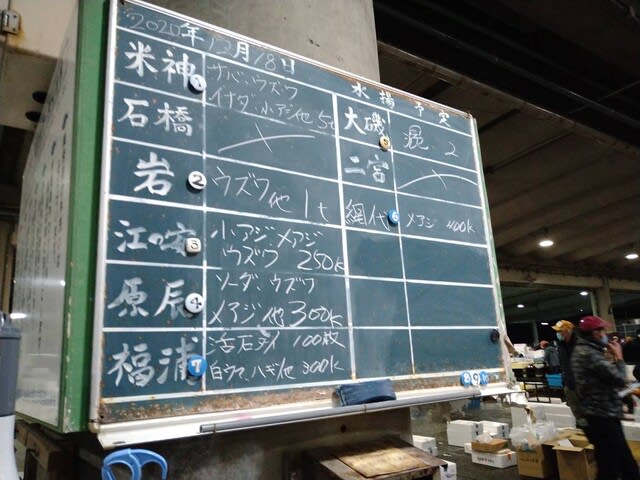 2020年12月18日
水揚予定
米神 1 サバ、ウズワ
イナダ、小アジ他 5t
石橋
岩 2 ウズワ他 1t
江の安 3 小アジ、メアジ
ウズワ 250k
原辰 4 ソーダ、ウズワ
メアジ他 300k
福浦 7 活石ダイ 100枚
白ウマ、ハギ他 300k
大磯 5 混 2
二宮
網代 6 メアジ 400k
8 9 10